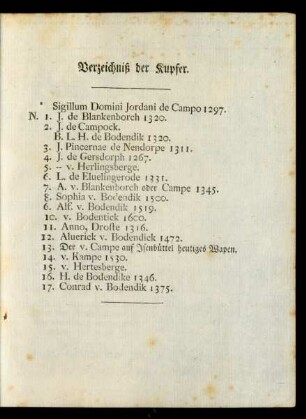 Verzeichniß der Kupfer.
* Sigillum Domini Jordani de Campo 1297.
N. 1. J. de Blankenborch 1320.
2. J. de Campock.
B. L. H. de Bodendik 1320.
3. J. Pincernae de Nendorpe 1311.
4. J. de Gersdorph 1267.
5. -- v. Herlingsberge.
6. L. de Eluelingerode 1331.
7. A. v. Blankenborch oder Campe 1345.
8. Sophia v. Bodendik 1500.
6. Alf. v. Bodendik 1519.
10. v. Bodentiek 1600.
11. Anno, Drofte 1316.
12. Aluerick v. Bodendieck 1472.
13. Der v. Campe auf Isenbüttel heutiges Wapen.
14. v. Kampe 1530.
15. v. Hertesberge.
16. H. de Bodendike 1346.
17. Conrad v. Bodendik 1375.